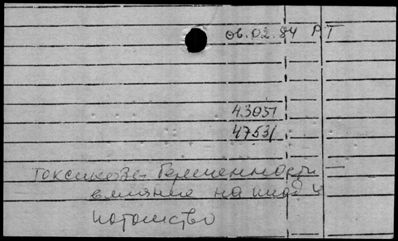 06.02.84 РТ
43051
47531
Токсикозы беременности
влияние на плод и
потомство